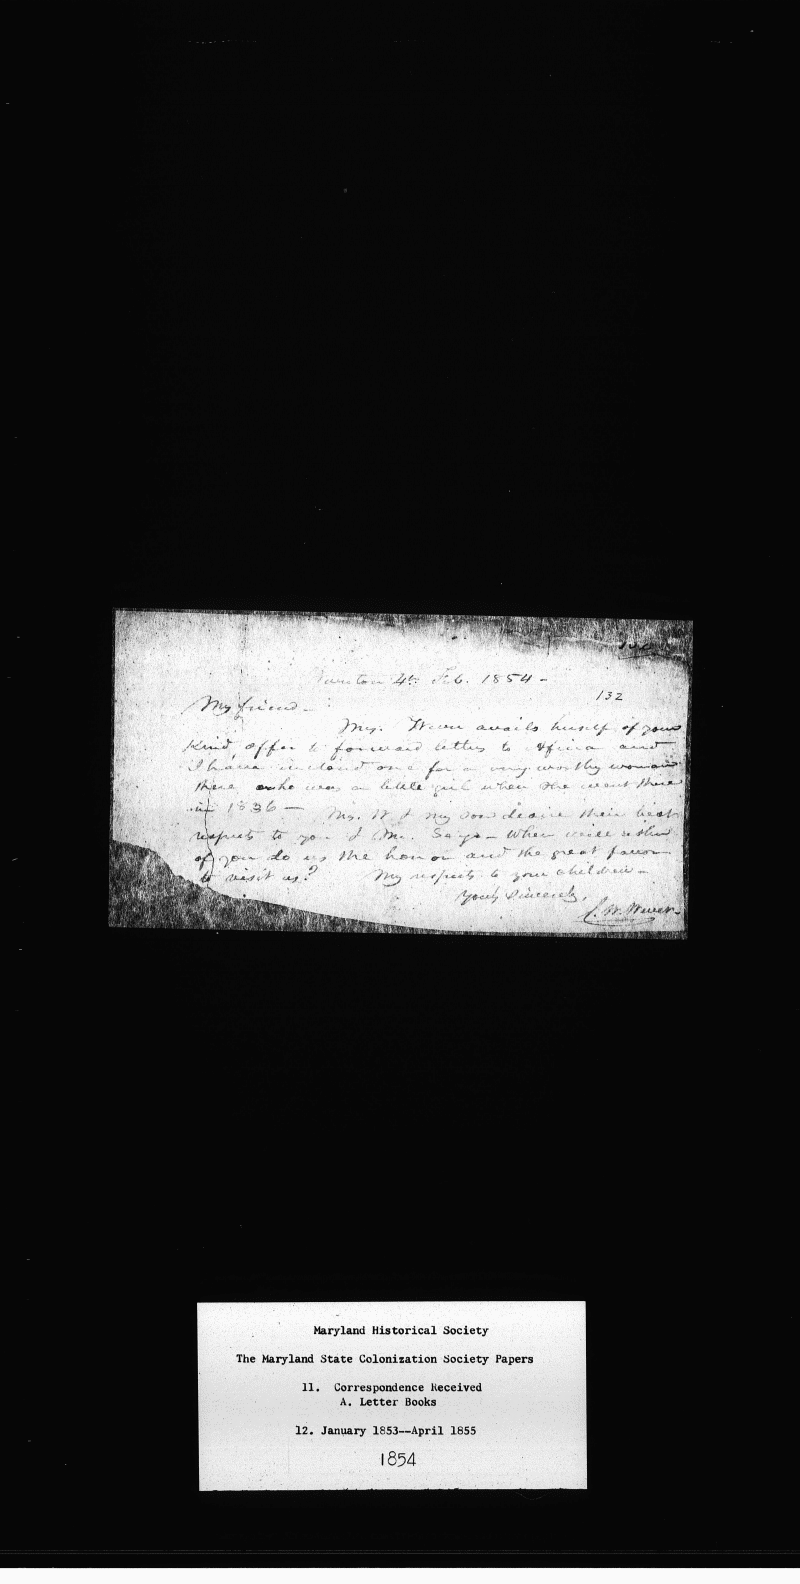 4th Feb. 1854 -
132
My friend -
Mrs. Wever avails herself of your
kind offer to forward letters to Africa and
I have inclosed one for a very worthy woman
there who was a little girl when she went there
in 1836 - Mrs. W & my son desire their best
respects to you & Mr. Seys - When will either
of you do us the honor and the great favor
to visit us? My respects to your children -
Yours Sincerely,
C. W. Wever -
Maryland Historical Society
The Maryland State Colonization Society Papers
11. Correspondence Received
A. Letter Books
12. January 1853--April 1855
1854